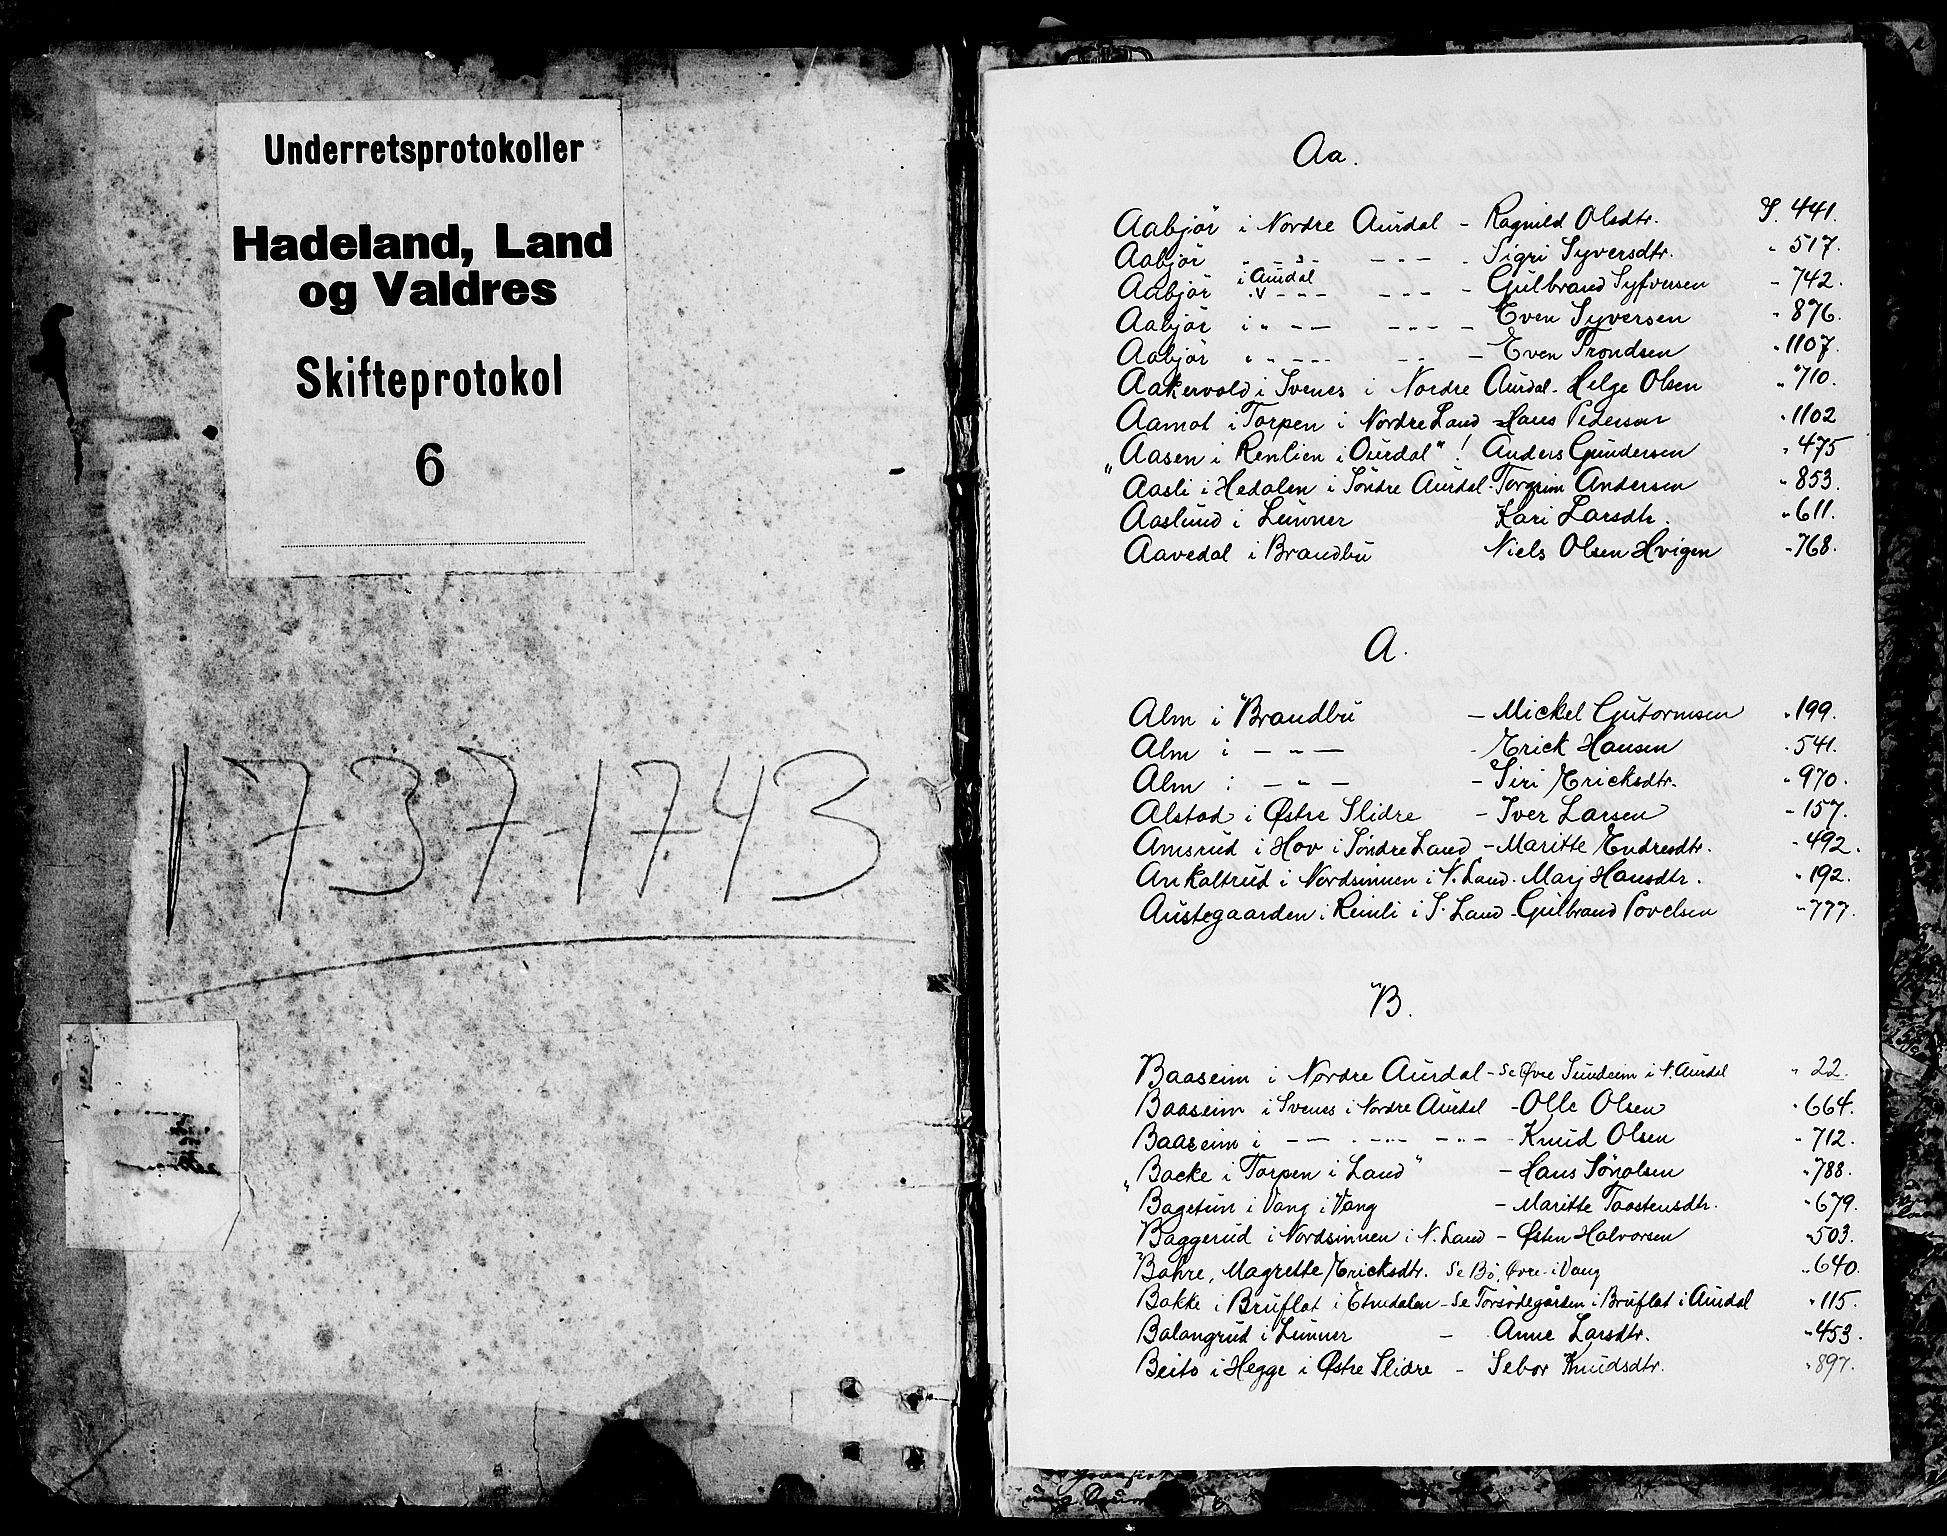 Underretsprotokoller
Hadeland, Land
og Valdres
Skifteprotokol
6
1737-1743
Aa.
Aabjör i Nordre Aurdal - Ragnild Olsdtr. S. 441.
Aabjör - " - - - - Sigri Syversdtr. " 517.
Aabjör i Aurdal - - - - Gulbrand Syfversen " 742.
Aabjör i " - - - - - Even Syversen " 876.
Aabjör " " - - - - - Even Trondsen " 1107.
Aakervold i Svenes i Nordre Aurdal - Helge Olsen " 710.
Aamot i Torpen i Nordre Land - Hans Pedersen " 1102
"Aasen i Renlien i Ourdal"! Anders Gundersen " 475
Aasli i Hedalen i Söndre Aurdal - Torgrim Andersen " 853.
Aaslund i Lunner Kari Larsdtr. " 611.
Aavedal i Brandbu Niels Olsen Hvigen " 768.
A.
Alm i Brandbu - Mickel Gutormsen " 199.
Alm i - " - - Erick Hansen " 541.
Alm i - " - - Siri Ericksdtr. " 970.
Alstad i Østre Slidre - Iver Larsen " 157.
Amsrud i Hov i Söndre Land - Maritte Endresdtr. " 492.
Ankaltrud i Nordsinnen i N. Land - Marj Hansdtr. " 192.
Austegaarden i Reinli i S. Land - Gulbrand Povelsen " 777.
B.
Baaseim i Nordre Aurdal - Se Øvre Sundeim i N. Aurdal " 22.
Baaseim i Svenes i Nordre Aurdal - Olle Olsen " 664.
Baaseim i - - - - - - - Knud Olsen " 712.
"Backe i Torpen i Land" - Hans Sönolsen " 788.
Bagetun i Vang i Vang - Maritte Taastensdtr. " 679.
Baggerud i Nordsinnen i N. Land - Østen Halvorsen " 503.
Bahre, Magrette Ericksdtr. Se Bö, Øvre i Vang " 640.
Bakke i Bruflat i Etnedalen - Se Torsödegården i Bruflat i Aurdal " 115.
Balangrud i Lunner - Anne Larsdtr. " 453.
Beito i Hegge i Østre Slidre - Sebor Knudsdtr. " 897.